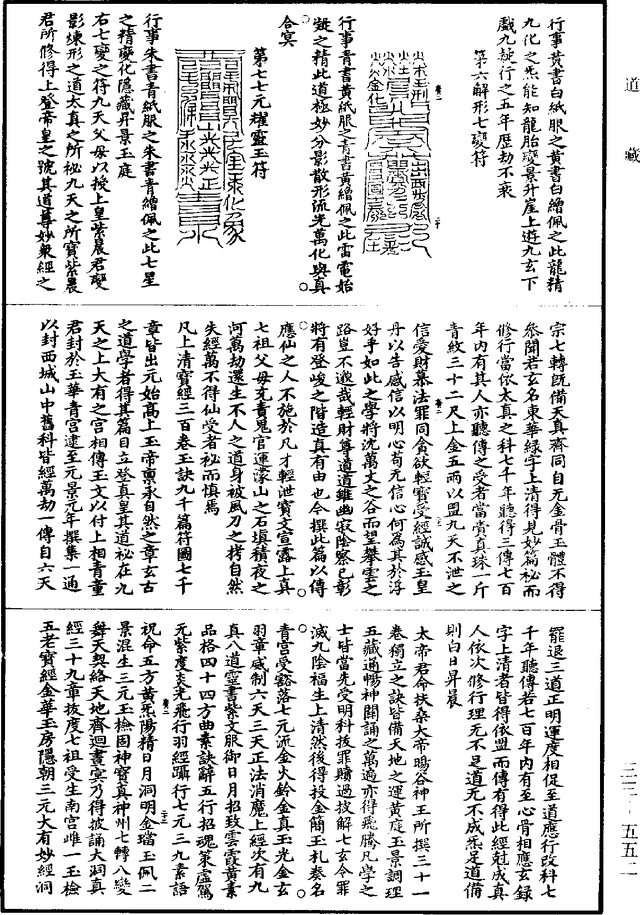 道藏
行事黃書白紙服之黃書白繒佩之此龍精
九化之炁能知龍胎變景升崖上遊九玄下
戲九㱕行之五年歷劫不衰
第六解形七變符
行事青書黃紙服之青書黃繒佩之此雷電始
凝之精此道極妙分影散形流光萬化與真
合冥
第七七元耀靈玉符
行事朱書青紙服之朱書青繒佩之此七星
之精變化隱藏昇景玉庭
右七變之符九天父母以授上皇紫晨君變
影煉形之道太真之所祕九天之所寶紫晨
君所修得上登帝皇之號其道尊妙眾經之
宗七轉既備天真齊同自无金骨玉體不得
參聞若玄名東華綠字上清得見妙篇祕而
修行當依太真之科七千年聽得三傳七百
年內有其人亦聽傳之受者當賫真珠一斤
青紋三十二尺上金五兩以盟九天不泄之
信愛財慕法罪同貪欲輕寶受經誠感玉皇
丹以告感信以明心苟无信心何為其於浮
好乎如此之學將沈萬丈之谷而望攀雲之
路豈不邈哉輕財尊道道雖幽寂陰察已彰
將有登峻之階造真有由也今撰此篇以傳
應仙之人不施於凡才輕泄寶文宣露上真
七祖父母充責鬼官運濛山之石填積夜之
河萬劫還生不人之道身被風刀之拷自然
失經萬不得仙受者祕而慎焉
凡上清寶經三百卷玉訣九千篇符圖七千
章皆出元始高上玉帝稟承自然之章玄古
之道學者得其篇目立登真皇其道祕在九
天之上大有之宮相傳玉文以付上相青童
君封於玉華青宮逮至元景元年撰集一通
以封西城山中舊科皆經萬劫一傳自六天
罷退三道正明運度相促至道應行改科七
千年聽傳若七百年內有至心骨相應玄錄
字上清者皆得依盟而傳有得此經尅成真
人依次修行理无不足道无不成炁足道備
則白日昇晨
太帝君命扶桑大帝暘谷神王所撰三十一
卷獨立之訣皆備天地之運黃庭玉景調理
五藏通暢神關誦之萬過亦得飛騰凡學之
士皆當先受明科拔罪贖過拔解七玄令罪
滅九陰福生上清然後得投金簡玉札奏名
青宮受豁落七元流金火鈴金真玉光金玄
羽章威制六天三天正法消魔上經次有九
真八道靈書紫文服御日月招致雲霞黃素
品格四十四方曲素訣辭五行招魂策虛駕
元紫度炎光飛行羽經躡行七元三九素語
祝命五方黃炁陽精日月洞明金璫玉佩二
景混生三元玉檢固神寶真神州七轉八變
舞天契絡天地齊迴晝冥乃得披誦大洞真
經三十九章拔度七祖受生南宮雌一玉檢
五老寶經金華玉房隱朝三元大有妙經洞